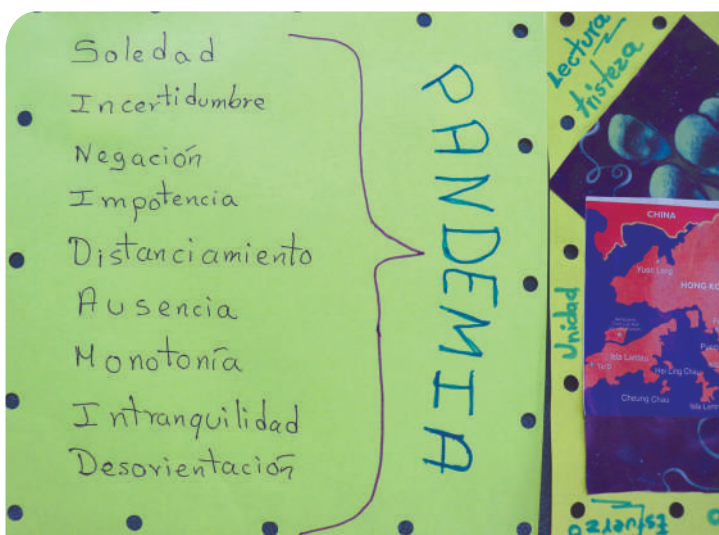 Soledad
Incertidumbre
Negación
Impotencia
Distanciamiento
Ausencia
Monotonía
Intranquilidad
Desorientación
PANDEMIA
Lectura
tristeza
Unidad
CHINA
Yuan Long
HONG KO
Isla Lantau
Hei Ling Chau
Cheung Chau
Esfuerzo